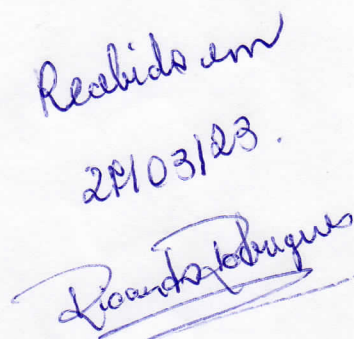 Recebido em
27/03/23.
Ricardo Rodrigues